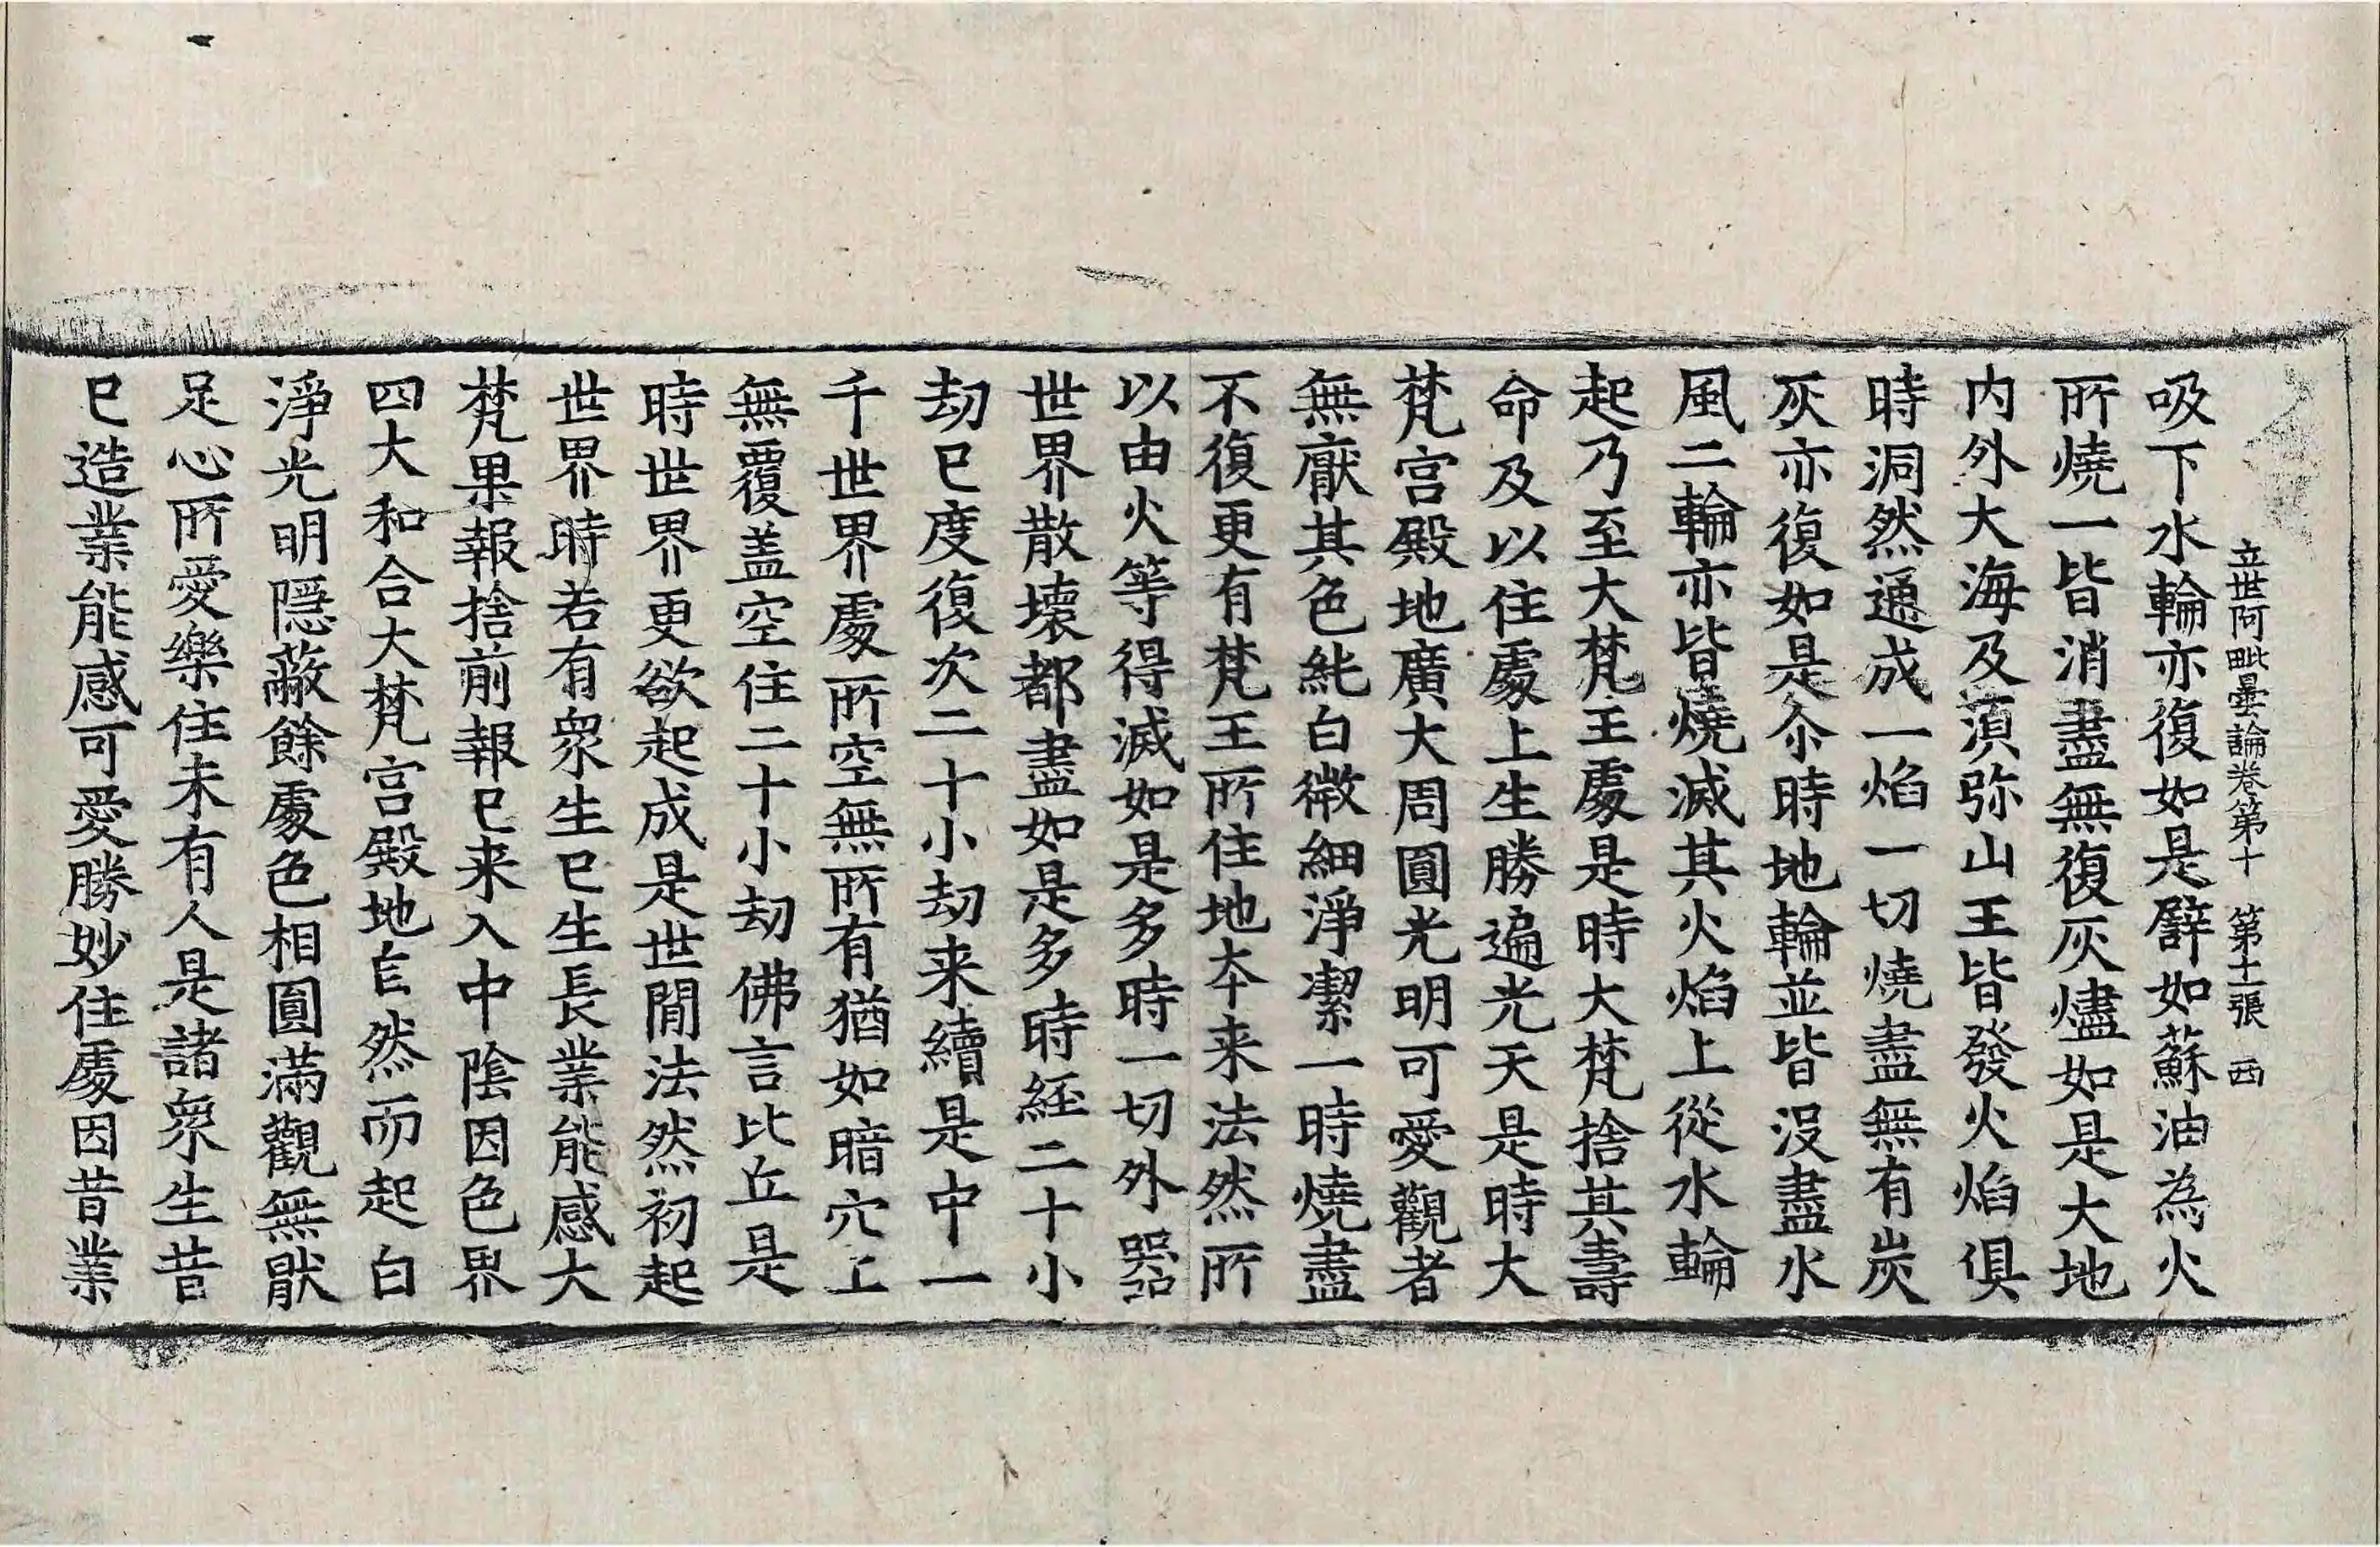 立世阿毗曇論卷第十　第十二張　西
吸下水輪亦復如是譬如蘇油為火
所燒一皆消盡無復灰燼如是大地
内外大海及湏弥山王皆發火焰俱
時洞然通成一焰一切燒盡無有炭
灰亦復如是尒時地輪並皆沒盡水
風二輪亦皆燒滅其火焰上從水輪
起乃至大梵王處是時大梵捨其壽
命及以住處上生勝遍光天是時大
梵宫殿地廣大周圓光明可愛觀者
無猒其色純白微細淨潔一時燒盡
不復更有梵王所住地夲来法然所
以由火等得滅如是多時一切外器
世界散壞都盡如是多時經二十小
劫已度復次二十小劫来續是中一
千世界處所空無所有猶如暗穴上
無覆盖空住二十小劫佛言比丘是
時世界更欲起成是世間法然初起
世界時若有衆生已生長業能感大
梵果報捨前報已来入中陰因色界
四大和合大梵宫殿地自然而起白
淨光明隱蔽餘處色相圓滿觀無猒
足心所愛樂住未有人是諸衆生昔
已造業能感可愛勝妙住處因昔業